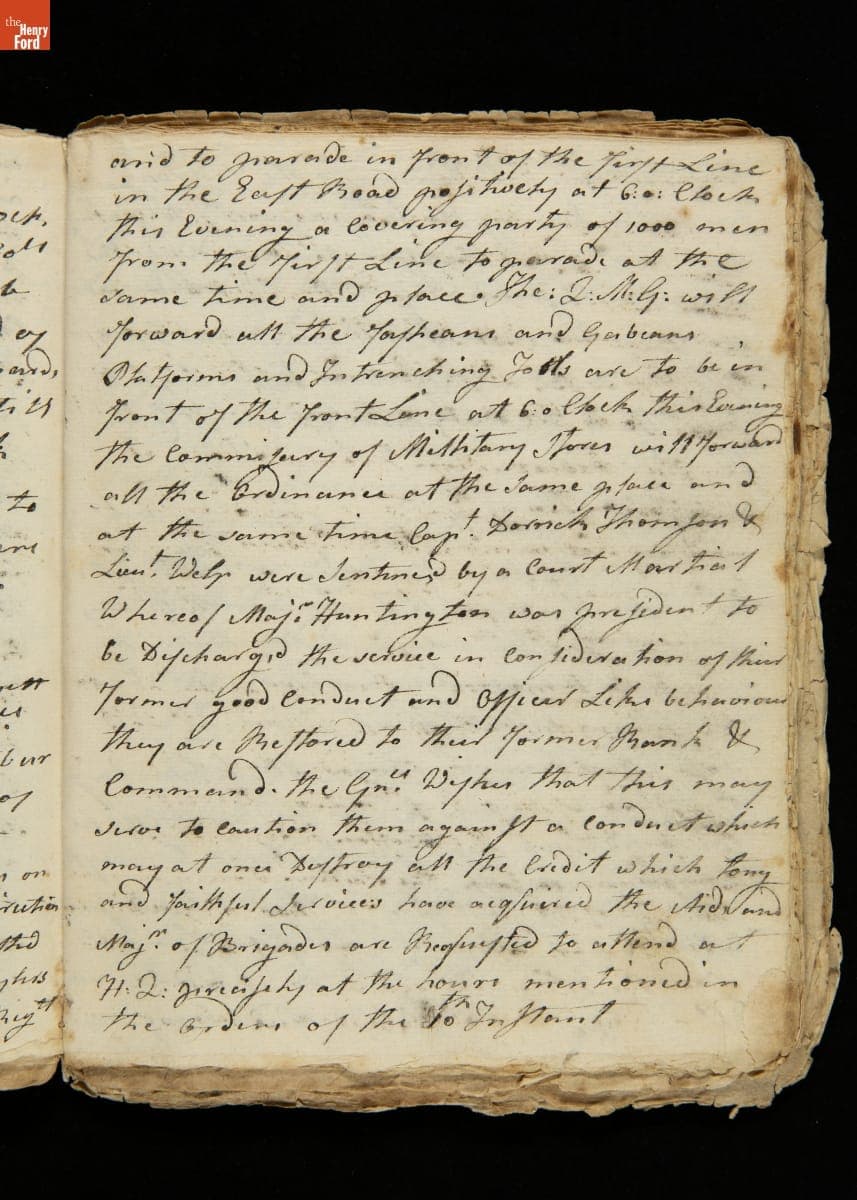 the
Henry
Ford
and to parade in front of the first Line
in the East Road positively at 6:o: Clock
this Evening a Covering party of 1000 men
from the first Line to parade at the
same time and place. The: Q: M: G: will
forward all the fasheans and Gabeans
Platforms and Intrenching Tolls are to be in
front of the front Line at 6:o Clock this Evening
the Commissary of Millitary Stores will forward
all the Ordinance at the same place and
at the same time Capt. Dorrick Thomson &
Lieut. Welp were Sentined by a Court Martial
Whereof Majr. Huntington was president to
be Discharged the service in Consideration of their
former good Conduct and Officer Like behaviour
they are Restored to their former Rank &
Command. the Gnel. Wishes that this may
serve to caution them against a Conduct which
may at once Destroy all the Credit which long
and faithful Services have acquired the Aids and
Majrs. of Brigades are Requested to attend at
H: Q: precisely at the hours mentioned in
the Orders of the 10th Instant
to
of
on